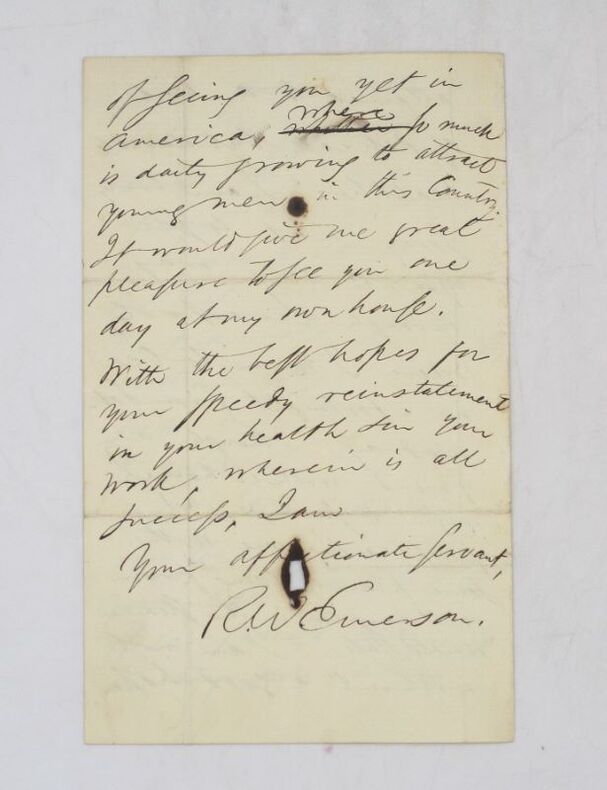 of seeing you yet in
America, where so much
is daily growing to attract
young men in this Country.
It would give me great
pleasure to see you one
day at my own house.
With the best hopes for
your speedy reinstatement
in your health & in your
work, wherein is all
success, I am
Your affectionate servant,
R.W. Emerson.